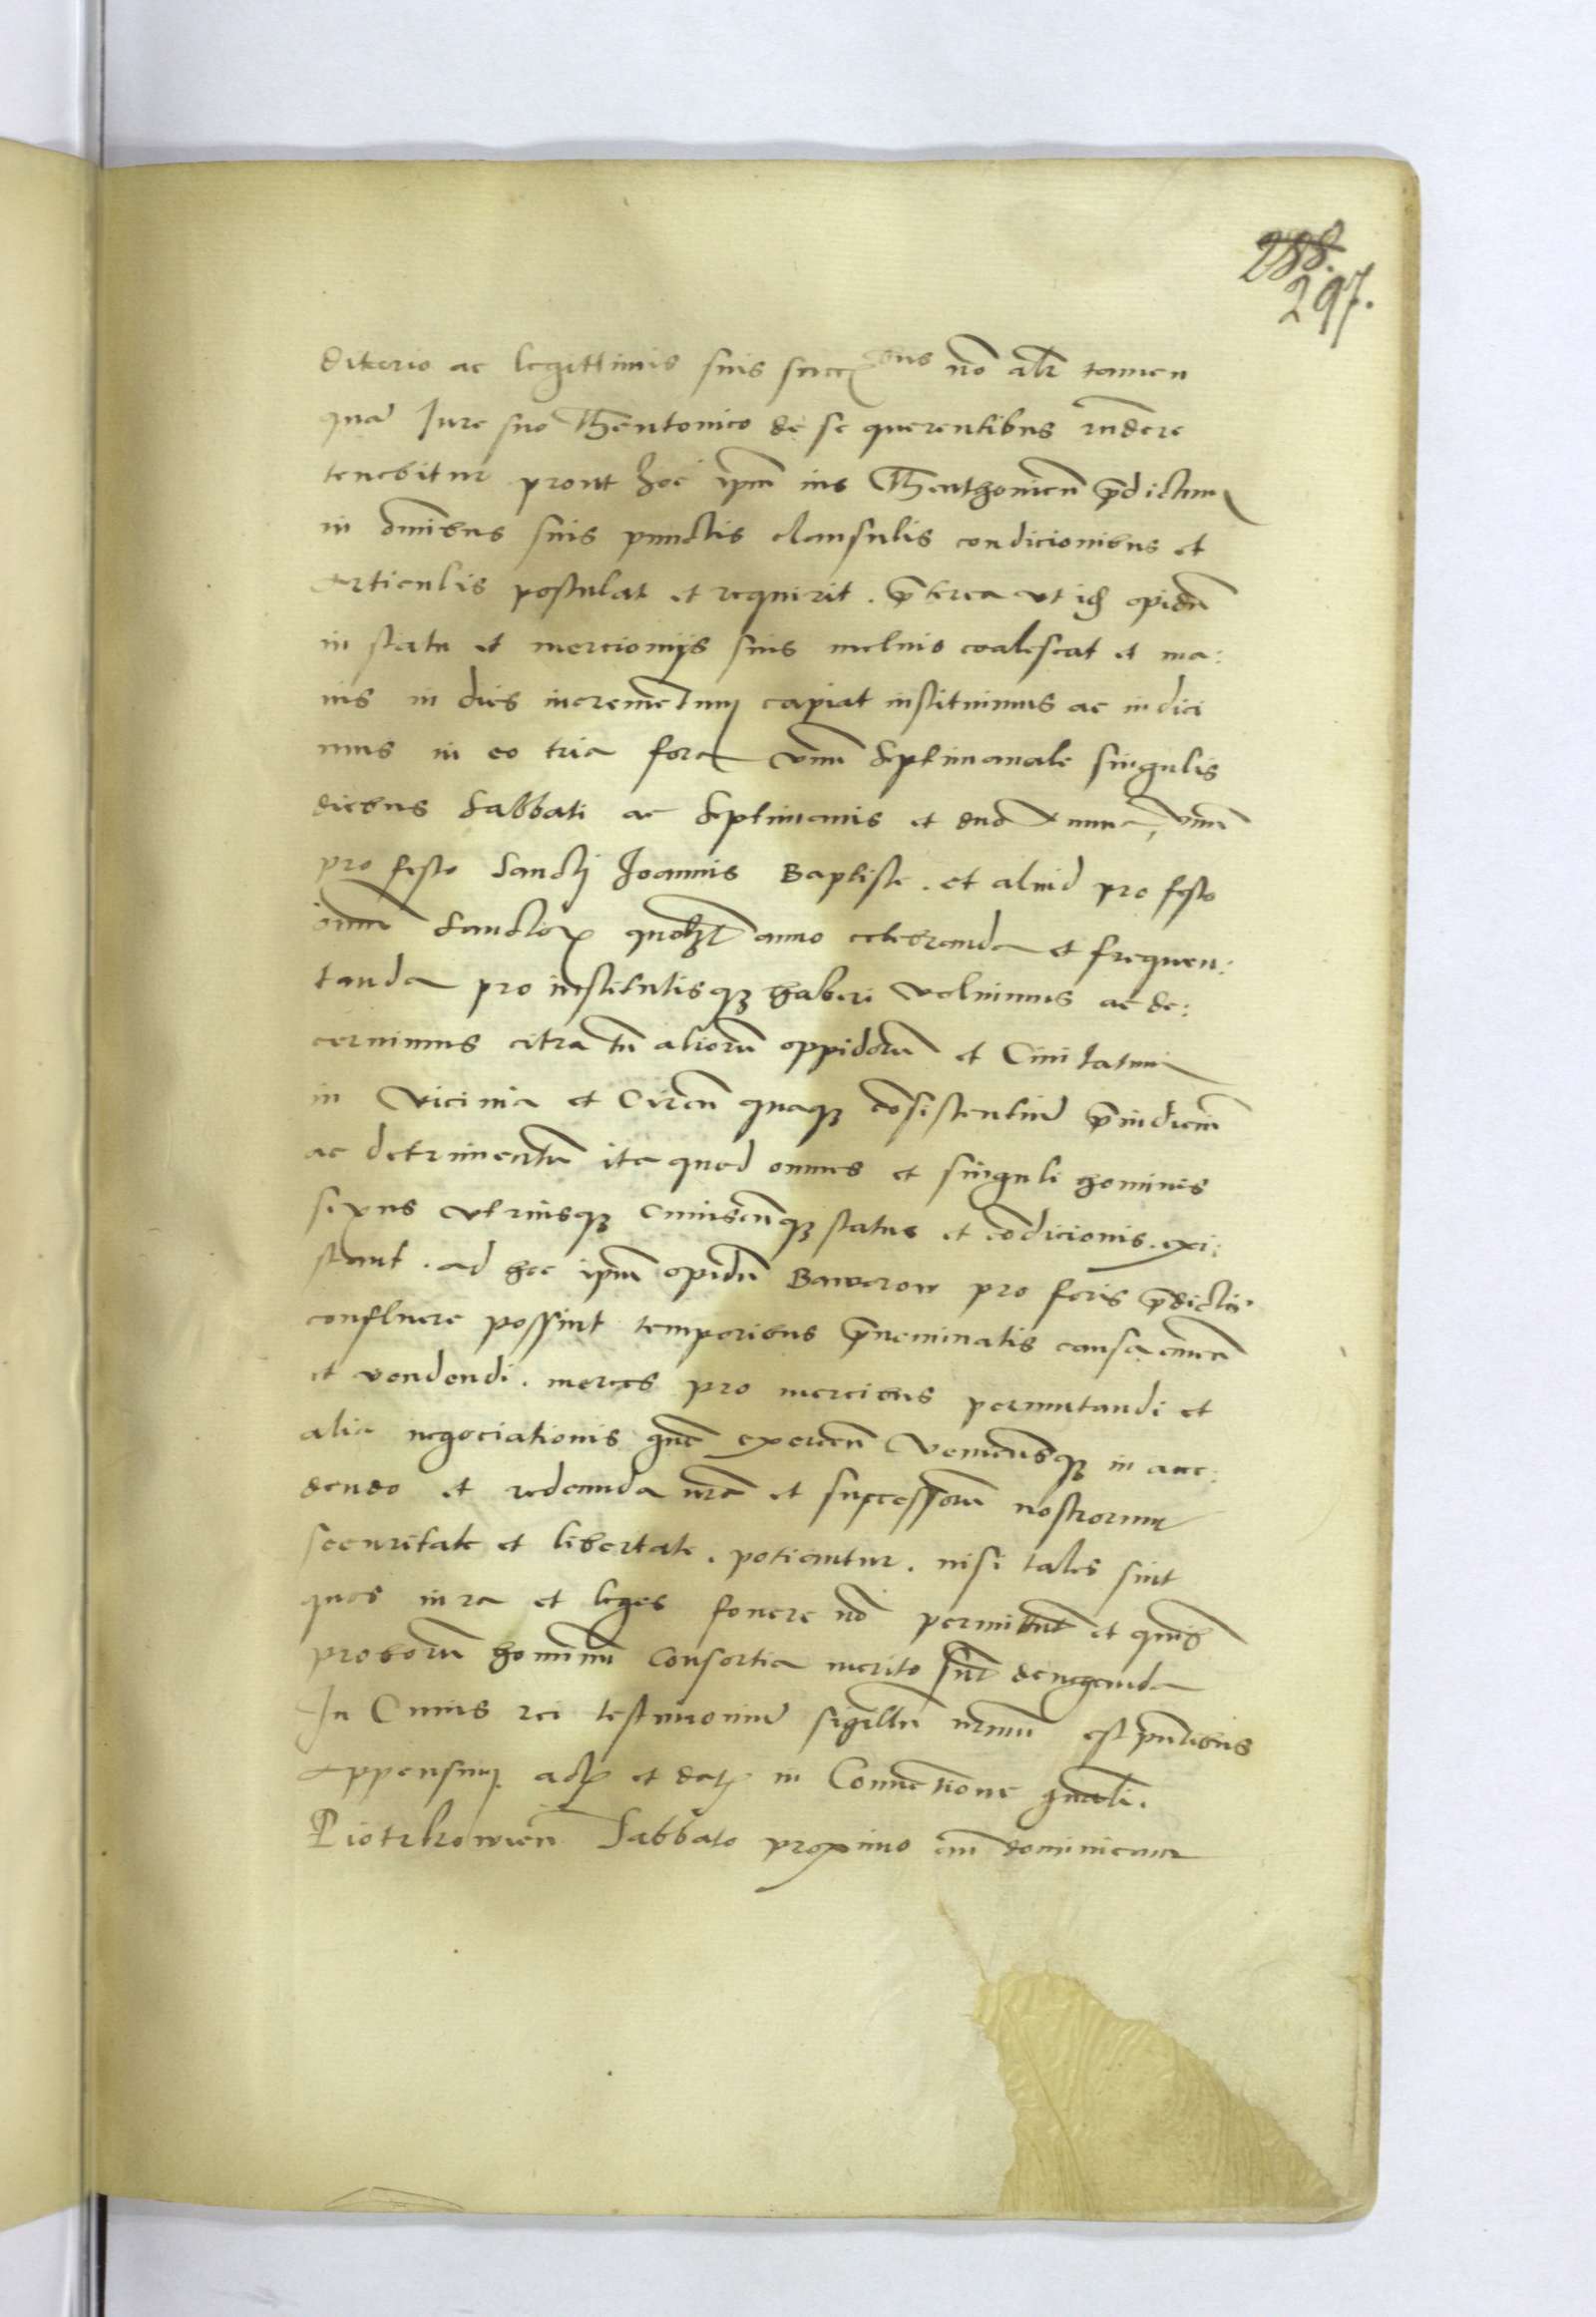 288.
297.
ditario ac legittimis suis succ bus nō alr tamen
quā Jure suo Thentonico de se querentibus rndere
tenebitur prout hoc ipm ius Theuthonicū p̄dictum
in omnibus suis punctis clausulis condicionibus et
Articulis postulat et requirit. p̄terea ut id opidū
in statu et mercioniis suis melius coalescat et ma:
ius in dies incremētum capiat instituimus ac indici
mus in eo tria fora vnū Septimanale singulis
diebus Sabbati ac Septimanis et duo Annua, vnū
pro festo Sancti Joannis Baptiste. et aliud pro festo
omī Sanctorꝝ quolt anno celebranda et frequen:
tanda pro institutisqꝫ haberi volumus ac de:
cernimus citra tn̄ aliorū oppidorū et Ciuitatum
in vicinia et Circū quaqꝫ cōsistentiū p̄iudiciū
ac detrimentū ita quod omnes et singuli homines
sexus vtriusqꝫ Cuiuscūqꝫ status et cōdicionis. exi:
stant. ad hoc ipm opidū Baworow pro foris p̄dictis
confluere possint temporibus p̄nominatis causa emen
et vendendi. merces pro mercibus permutandi et
alia negociationis gn̄e exercen Veniensqꝫ in acce:
dendo et redeundo nrā et successorū nostrorum
securitate et libertate. potiantur. nisi tales sint
quos iura et leges fouere nō permittūt et quibꝫ
proborū hominū consortia merito sūt deneganda
In Cuius rei testimoniū sigillū nrm̄ est pn̄tibus
Appensum. actꝫ et datꝫ in Conuētione gn̄ali.
Piotrkowien̄ Sabbato proximo an̄ dominicam